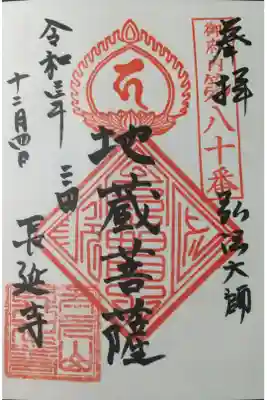 奉拝
御府内第八十番
弘法大師
地蔵菩薩
三田
長延寺
令和三年
十二月四日